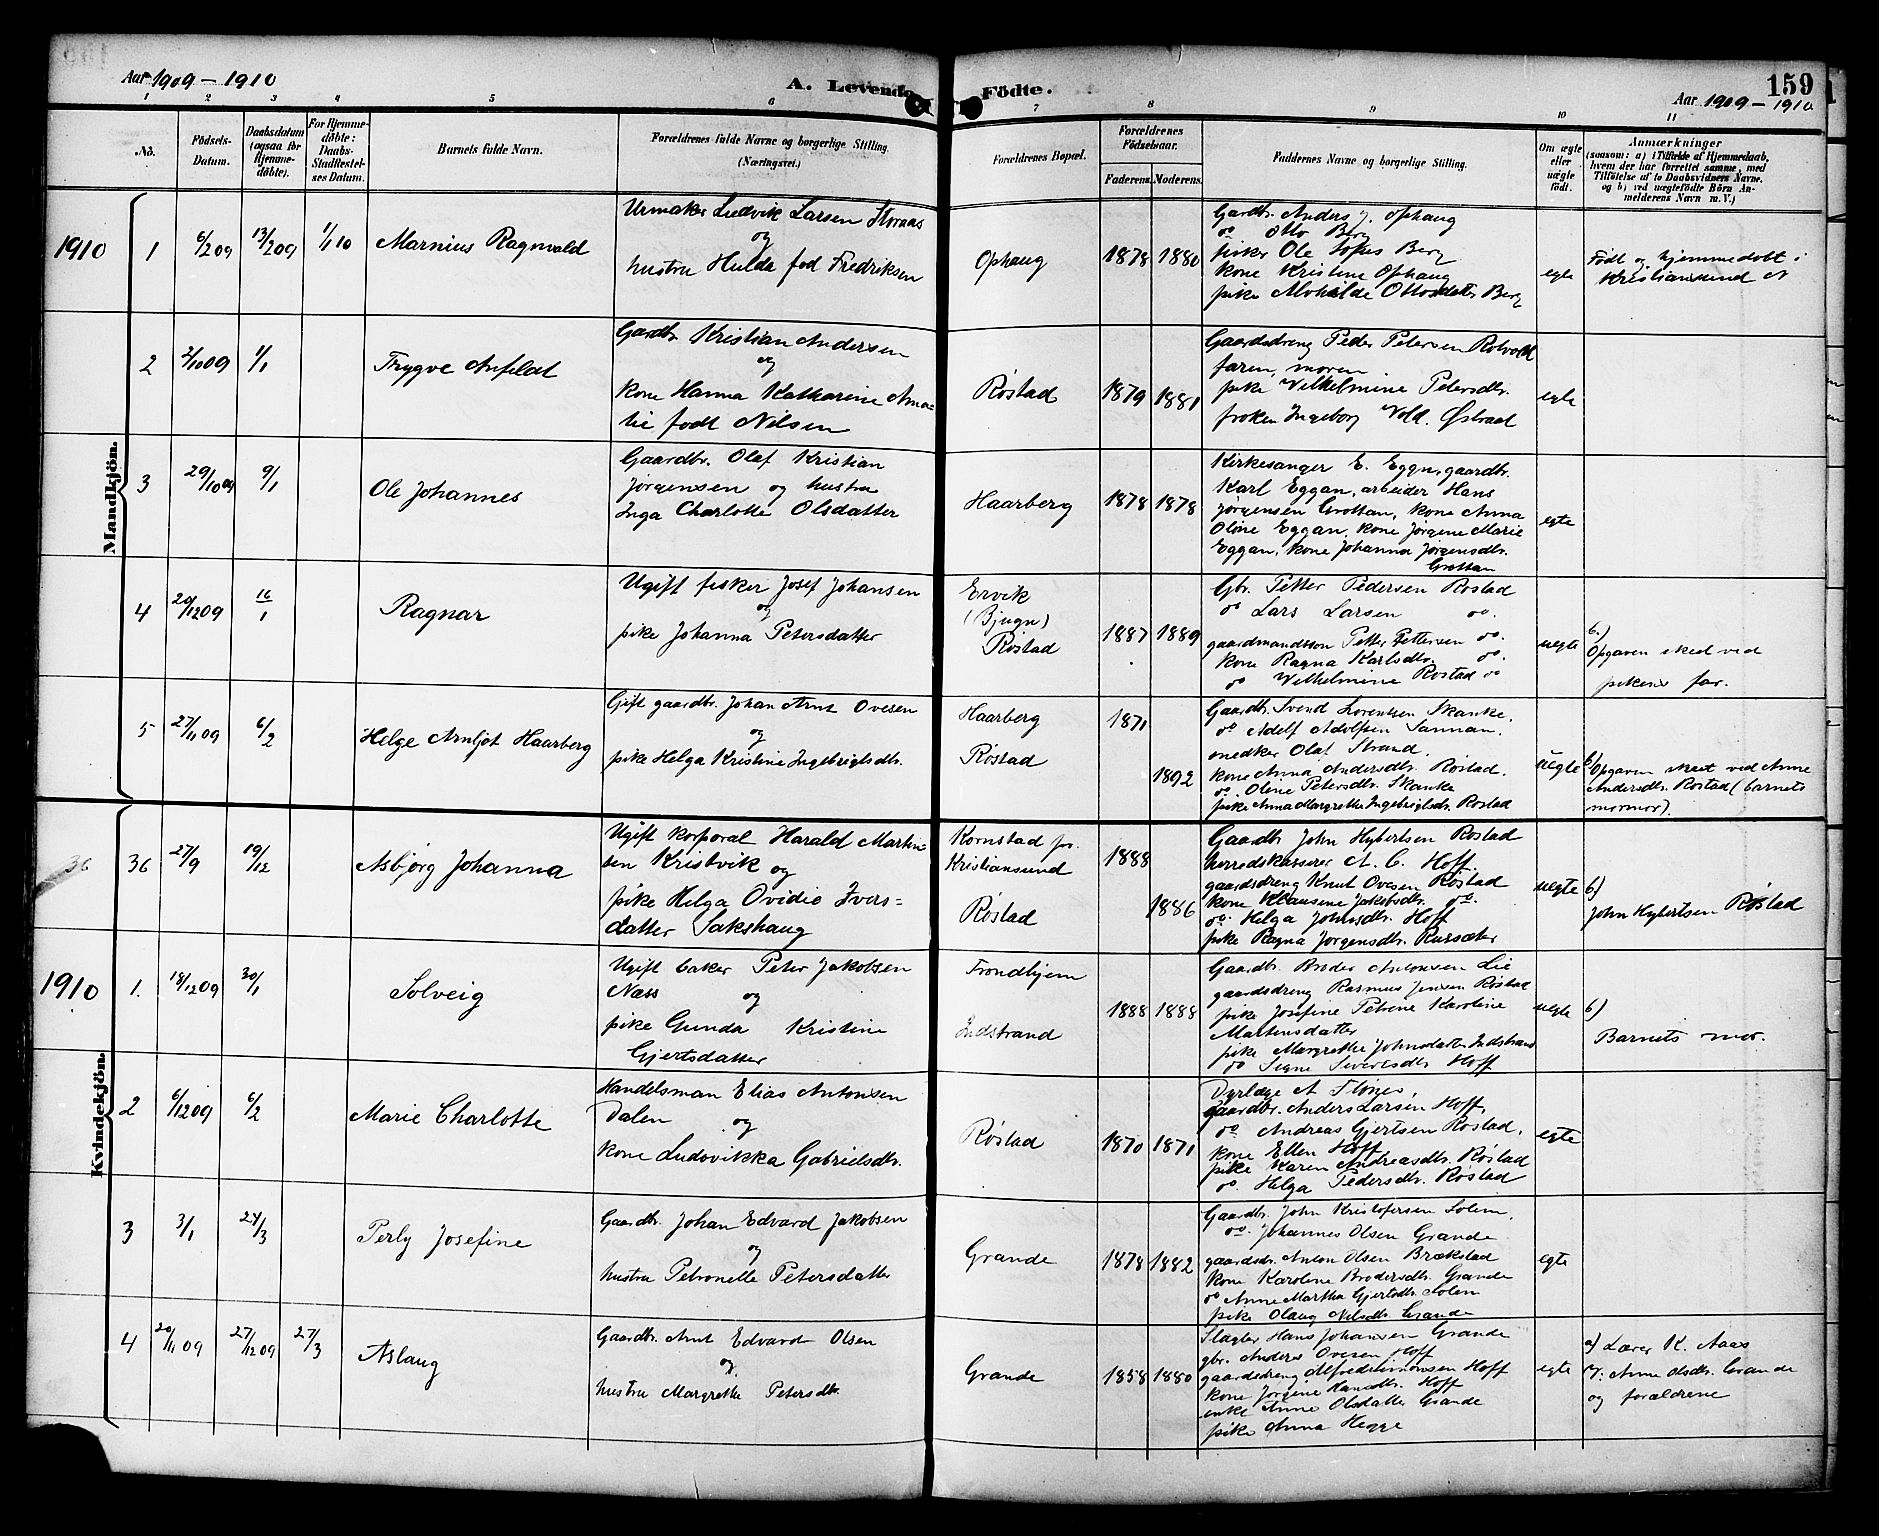 Aar 1909 – 1910
A. Levende
Födte.
159
Aar 1909 – 1910
1 2 3 4 5 6 7 8 9 10 11
No.
Födsels-
Datum.
Daabsdatum
(ogsaa for
Hjemme-
döbte).
For Hjemme-
döbte:
Daabs-
Stadfæstel-
ses Datum.
Barnets fulde Navn.
Forældrenes fulde Navne og borgerlige Stilling.
(Næringsvei.)
Forældrenes Bopæl.
Forældrenes
Födselsaar.
Faderens. Moderens.
Faddernes Navne og borgerlige Stilling.
Om ægte
eller
uægte
født.
Anmærkninger
(saasom: a) i Tilfælde af Hjemmedaab,
hvem der har forrettet samme, med
Tilföielse af to Daabsvidners Navne,
og b) ved uægtefödte Börn An-
melderens Navn m. V.)
Mandkjön.
1910
1 6/2 09 13/2 09 1/1 10
Marnius Ragnvald
Urmaker Ludvik Larsen Storaas
og
hustru Hulda fød Fredriksen
Ophaug
1878 1880
Gardbr. Anders J. Ophaug
do Otto Berg
fisker Ole Sofus Berg
kone Kristine Ophaug
pike Alvhilde Ottosdatter Berg
egte
Født og hjemmedøbt i
Kristiansund N
2 2/10 09 1/1
Trygve Anfeldt
Gardbr. Kristian Andersen
og
kone Hanna Katharine Ama-
lie født Nilsen
Røstad
1879 1881
Gaardsdreng Peder Petersen Rotvold
faren, moren
pike Vilhelmine Petersdtr.
frøken Ingeborg Vold. Østraat
egte
3 29/10 09 9/1
Ole Johannes
Gaardbr. Olaf Kristian
Jørgensen og hustru
Inga Charlotte Olsdatter
Haarberg
1878 1878
Kirkesanger E. Eggan, gaardbr.
Karl Eggan, arbeider Hans
Jørgensen Grottan, kone Anna
Oline Eggan, kone Jørgine Marie
Eggan, kone Johanna Jørgensdtr.
Grottan
egte
4 20/12 09 16/1
Ragnar
Ugift fisker Josef Johansen
og
pike Johanna Petersdatter
Ervik
(Bjugn)
Røstad
1887 1889
Gbr. Petter Pedersen Røstad
do Lars Larsen do.
gaardmandssøn Petter Pettersen do.
kone Ragna Karlsdtr. do.
do Vilhelmine Røstad do
uegte
b)
Opgaven skeed ved
pikens far.
5 27/11 09 6/2
Helge Arnljot Haarberg
Gift gaardbr. Johan Arnt Ovesen
og
pike Helga Kristine Ingebrigtsdtr.
Haarberg
Røstad
1871
1892
Gaardbr. Svend Lorentsen Skanke,
do Adolf Adolfsen Sannan,
snedker Olaf Strand,
kone Anna Andersdtr. Røstad.
do. Oline Petersdtr. Skanke
pike Anna Margrethe Ingebrigtsdtr. Røstad
uegte
b)
Opgaven skeet ved Anne
Andersdtr. Røstad (barnets
mormor).
36 36 27/9 19/12
Asbjørg Johanna
Ugift korporal Harald Martin-
sen Kristvik og
pike Helga Ovidie Ivers-
datter Sakshaug
Kornstad pr.
Kristiansund
Røstad
1888
1886
Gaardbr. John Hybertsen Røstad
herredskasserer A. C. Hoff
gaardsdreng Knut Ovesen Røstad
kone Klausine Jakobsdtr. do.
do. Helga Johnsdtr. Hoff
pike Ragna Jørgensdtr. Russæter
uegte
b)
John Hybertsen Røstad
Kvindekjön.
1910
1. 18/12 09 30/1
Solveig
Ugift baker Peter Jakobsen
Næss og
pike Gunda Kristine
Gjertsdatter
Trondhjem
Indstrand
1888 1888
Gaardbr. Broder Antonsen Lie
gaardsdreng Rasmus Jensen Røstad
pike Josefine Petrine Karoline
Martensdatter
pike Margrethe Johnsdatter Indstrand
do Signe Sivertsdtr. Hoff
uegte
b)
Barnets mor.
2 6/12 09 6/2
Marie Charlotte
Handelsman Elias Antonsen
Dalen og
kone Ludovikka Gabrielsdtr.
Røstad
1870 1871
Dyrlæge A Flønes,
gaardbr. Anders Larsen Hoff,
do Andreas Gjertsen Røstad,
kone Ellen Hoff
pike Karen Andreasdtr. Røstad
do. Helga Pedersdtr. Røstad
egte
3 3/1 24/3
Perly Josefine
Gaardbr. Johan Edvard Jakobsen
og
hustru Petronelle Petersdatter
Grande
1878 1882
Gaardbr. John Kristofersen Solem,
do. Johannes Olsen Grande
gaardsdr. Anton Olsen Brækstad
kone Karoline Brodersdtr. Grande
do Anne Martha Gjertsdtr. Solem
pike Olaug Nilsdtr. Grande
egte
4 20/11 09 27/12 09 27/3
Aslaug
Gaardbr. Arnt Edvard Olsen
og
hustru Margrethe Petersdtr.
Grande
1858 1880
Slagter Hans Johansen Grande
gbr. Anders Ovesen Hoff
gaardsdreng Alfred Simonsen Hoff
kone Jørgine Hansdtr. Hoff
enke Anne Olsdatter Grande
pike Anna Hegge
egte
a) Lærer K. Aaas
V: Anne Olsdtr. Grande
og forældrene